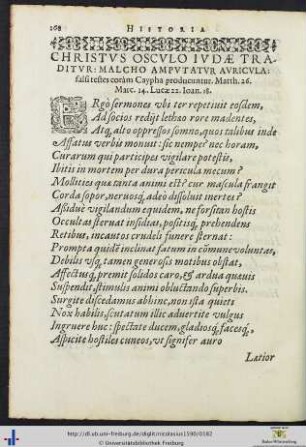 168 HISTORIA
CHRISTVS OSCVLO IVDÆ TRA-
DITVR: MALCHO AMPVTATVR AVRICVLA:
falsi testes coràm Caypha producuntur. Matth. 26.
Marc. 14. Lucæ 22. Ioan. 18.
ERgò sermones vbi ter repetiuit eosdem,
Ad socios redijt lethæo rore madentes,
Atq, alto oppressos somno, quos talibus inde
Affatus verbis monuit: sic nempe? nec horam,
Curarum qui participes vigilare potestis,
Ibitis in mortem per dura pericula mecum?
Mollities quæ tanta animi est? cur mascula frangit
Corda sopor, neruosq, adeò dissoluit inertes?
Aßiduè vigilandum equidem, ne forsitan hostis
Occultas sternat insidias, positisq, prehendens
Retibus, incautos crudeli funere sternat:
Prompta quidẽ inclinat fatum in cõmune voluntas,
Debilis vsq, tamen generosis motibus obstat,
Affectusq, premit solidos caro, & ardua quæuis
Suspendit, stimulis animi obluctando superbis.
Surgite discedamus abhinc, non ista quieti
Nox habilis, scutatum illic aduertite vulgus
Ingruere huc: spectate ducem, gladiosq, facesq,,
Aspicite hostiles cuneos, vt signifer auro
Latior
http://dl.ub.uni-freiburg.de/diglit/nicolasius1590/0182
© Universitätsbibliothek Freiburg